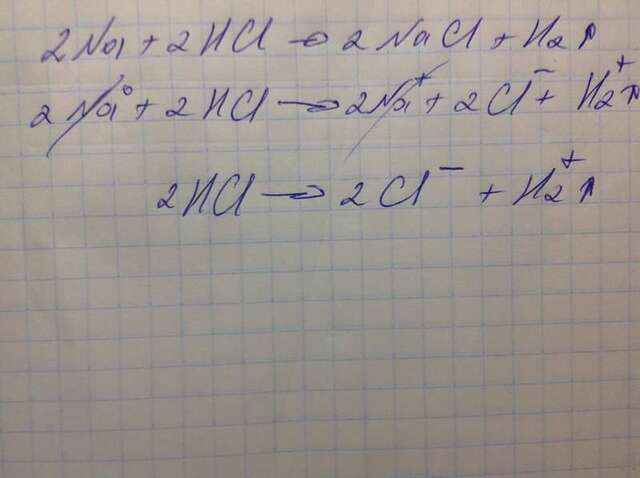 2Na + 2HCl → 2NaCl + H₂↑
2Na⁰ + 2HCl → 2Na⁺ + 2Cl⁻ + H₂⁺↑
2HCl → 2Cl⁻ + H₂⁺↑